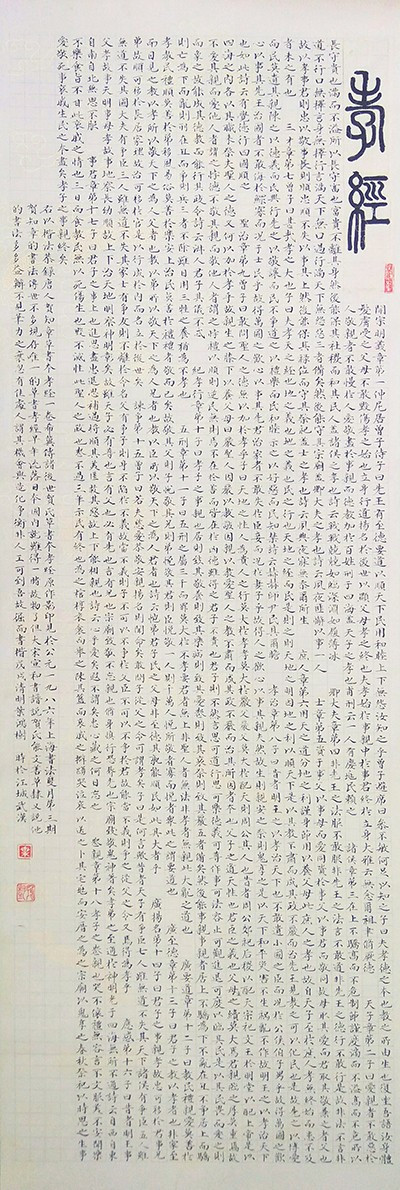 孝經
開宗明義章第一仲尼居曾子侍子曰先王有至德要道以順天下民用和睦上下無怨汝知之乎曾子避席曰參不敏何足以知之子曰夫孝德之本也教之所由生也復坐吾語汝身體
髮膚受之父母不敢毀傷孝之始也立身行道揚名於後世以顯父母孝之終也夫孝始於事親中於事君終於立身大雅云無念爾祖聿脩厥德 天子章第二子曰愛親者不敢惡於
人敬親者不敢慢於人愛敬盡於事親而德教加於百姓刑于四海蓋天子之孝也甫刑云一人有慶兆民賴之 諸侯章第三在上不驕高而不危制節謹度滿而不溢高而不危所以
長守貴也滿而不溢所以長守富也富貴不離其身然後能保其社稷而和其民人蓋諸侯之孝也詩云戰戰兢兢如臨深淵如履薄冰 卿大夫章第四非先王之法服不敢服非先王之法言不敢道非先王之德行不敢行是故非法不言非
道不行口無擇言身無擇行言滿天下無口過行滿天下無怨惡三者備矣然後能守其宗廟蓋卿大夫之孝也詩云夙夜匪懈以事一人 士章第五資於事父以事母而愛同資於事父以事君而敬同故母取其愛而君取其敬兼之者父也
故以孝事君則忠以敬事長則順忠順不失以事其上然後能保其祿位而守其祭祀蓋士之孝也詩云夙興夜寐無忝爾所生 庶人章第六用天之道分地之利謹身節用以養父母此庶人之孝也故自天子至於庶人孝無終始而患不及
者未之有也 三才章第七曾子曰甚哉孝之大也子曰夫孝天之經也地之義也民之行也天地之經而民是則之則天之明因地之利以順天下是以其教不肅而成其政不嚴而治先王見教之可以化民也是故先之以博愛
而民莫遺其親陳之以德義而民興行先之以敬讓而民不爭導之以禮樂而民和睦示之以好惡而民知禁詩云赫赫師尹民具爾瞻 孝治章第八子曰昔者明王之以孝治天下也不敢遺小國之臣而況於公侯伯子男乎故得萬國之懽
心以事其先王治國者不敢侮於鰥寡而況於士民乎故得百姓之懽心以事其先君治家者不敢失於臣妾而況於妻子乎故得人之懽心以事其親夫然故生則親安之祭則鬼享之是以天下和平災害不生禍亂不作故明王之以孝治天下
也如此詩云有覺德行四國順之 聖治章第九曾子曰敢問聖人之德無以加於孝乎子曰天地之性人為貴人之行莫大於孝孝莫大於嚴父嚴父莫大於配天則周公其人也昔者周公郊祀后稷以配天宗祀文王於明堂以配上帝是以
四海之內各以其職來祭夫聖人之德又何以加於孝乎故親生之膝下以養父母日嚴聖人因嚴以教敬因親以教愛聖人之教不肅而成其政不嚴而治其所因者本也父子之道天性也君臣之義也父母生之續莫大焉君親臨之厚莫重焉故
不愛其親而愛他人者謂之悖德不敬其親而敬他人者謂之悖禮以順則逆民無則焉不在於善而皆在於凶德雖得之君子不貴也君子則不然言思可道行思可樂德義可尊作事可法容止可觀進退可度以臨其民是以其民畏而愛之則
而象之故能成其德教而行其政令詩云淑人君子其儀不忒 紀孝行章第十子曰孝子之事親也居則致其敬養則致其樂病則致其憂喪則致其哀祭則致其嚴五者備矣然後能事親事親者居上不驕為下不亂在醜不爭居上而驕
則亡為下而亂則刑在醜而爭則兵三者不除雖日用三牲之養猶為不孝也 五刑章第十一子曰五刑之屬三千而罪莫大於不孝要君者無上非聖人者無法非孝者無親此大亂之道也 廣要道章第十二子曰教民親愛莫善於
孝教民禮順莫善於弟移風易俗莫善於樂安上治民莫善於禮禮者敬而已矣故敬其父則子悅敬其兄則弟悅敬其君則臣悅敬一人而千萬人悅所敬者寡而悅者眾此之謂要道也 廣至德章第十三子曰君子之教以孝也非家至
而日見之也教以孝所以敬天下之為人父者也教以弟所以敬天下之為人兄者也教以臣所以敬天下之為人君者也詩云愷悌君子民之父母非至德其孰能順民如此其大者乎 廣揚名章第十四子曰君子之事親孝故忠可移於君事兄
弟故順可移於長居家理故治可移於官是以行成於內而名立於後世矣 諫爭章第十五曾子曰若夫慈愛恭敬安親揚名則聞命矣敢問子從父之令可謂孝乎子曰是何言與是何言與昔者天子有爭臣七人雖無道不失其天下諸侯有爭臣五人雖
無道不失其國大夫有爭臣三人雖無道不失其家士有爭友則身不離於令名父有爭子則身不陷於不義故當不義則子不可以不爭於父臣不可以不爭於君故當不義則爭之從父之令又焉得為孝乎 應感章第十六子曰昔者明王事
父孝故事天明事母孝故事地察長幼順故上下治天地明察神明彰矣故雖天子必有尊也言有父也必有先也言有兄也宗廟致敬不忘親也脩身慎行恐辱先也宗廟致敬鬼神著矣孝弟之至通於神明光于四海無所不通詩云自西自東
自南自北無思不服 事君章第十七子曰君子之事上也進思盡忠退思補過將順其美匡救其惡故上下能相親也詩云心乎愛矣遐不謂矣中心藏之何日忘之 喪親章第十八子曰孝子之喪親也哭不偯禮無容言不文服美不安聞樂
不樂食旨不甘此哀戚之情也三日而食教民無以死傷生毀不滅性此聖人之政也喪不過三年示民有終也為之棺椁衣衾而舉之陳其簠簋而哀戚之擗踊哭泣哀以送之卜其宅兆而安厝之為之宗廟以鬼享之春秋祭祀以時思之生事
愛敬死事哀戚生民之本盡矣孝子之事親終矣
右以楷法恭錄唐人賀知章草書孝經一卷
賀知章的書法傳世不多現存在一的草書孝經早年流落日本國內
的書法